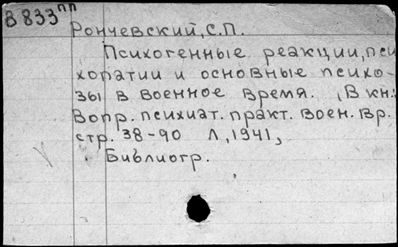 В 833пп
Рончевский, С.П.
Психогенные реакции, пси
хопатии и основные психо-
зы в военное время. (В кн.:
Вопр. психиат. практ. воен. вр.
стр. 38-90 Л, 1941,
Библиогр.